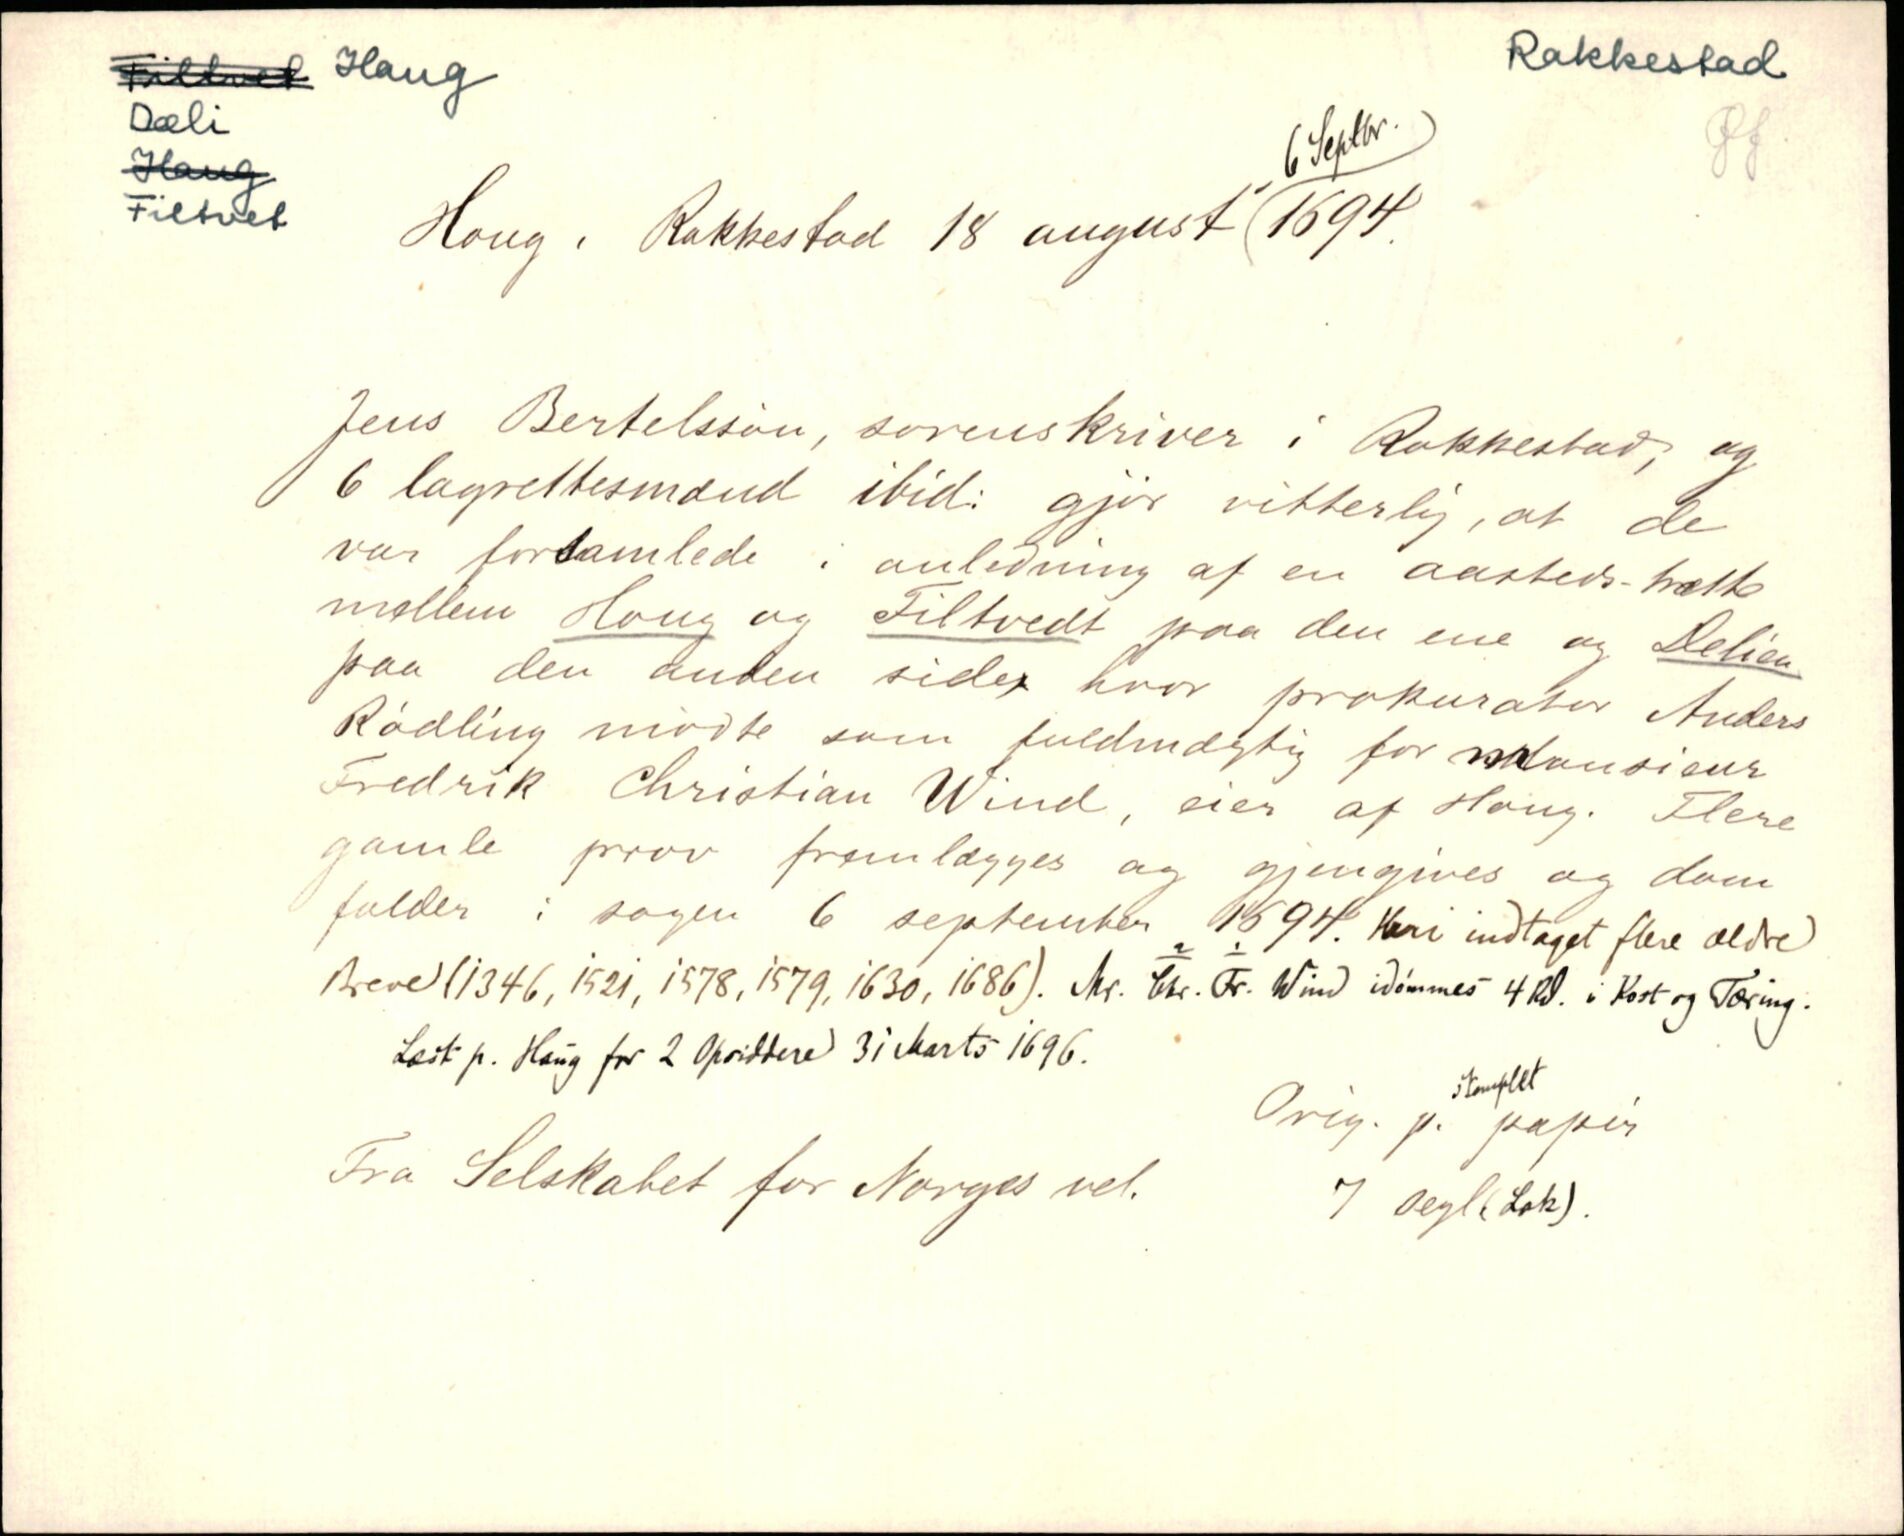 Filtvet Haug
Rakkestad
Dæli
Haug
Filtvet
6 Septbr.
Haug i Rakkestad 18 august 1694.
Jens Bertelssøn, sorenskriver i Rakkestad, og
6 lagrettesmænd ibid: gjør vitterlig, at de
var forsamlede i anledning af en aasteds-trætte
mellem Haug og Filtvedt paa den ene og Delien
paa den anden side, hvor prokurator Anders
Rödling mödte som fuldmægtig for monsieur
Fredrik Christian Wind, eier af Haug. Flere
gamle prov fremlægges og gjengives og dom
falder i sagen 6 september 1694. Heri indtaget flere ældre
Breve (1346, 1521, 1578, 1579, 1630, 1686). Mr. Chr. Fr. Wind idømmes 4 Rd. i Kost og Tæring.
Læst p. Haug for 2 Opsiddere 31 Marts 1696.
Orig. p. stemplet papir
Fra Selskabet for Norges vel.
7 segl (Lak).